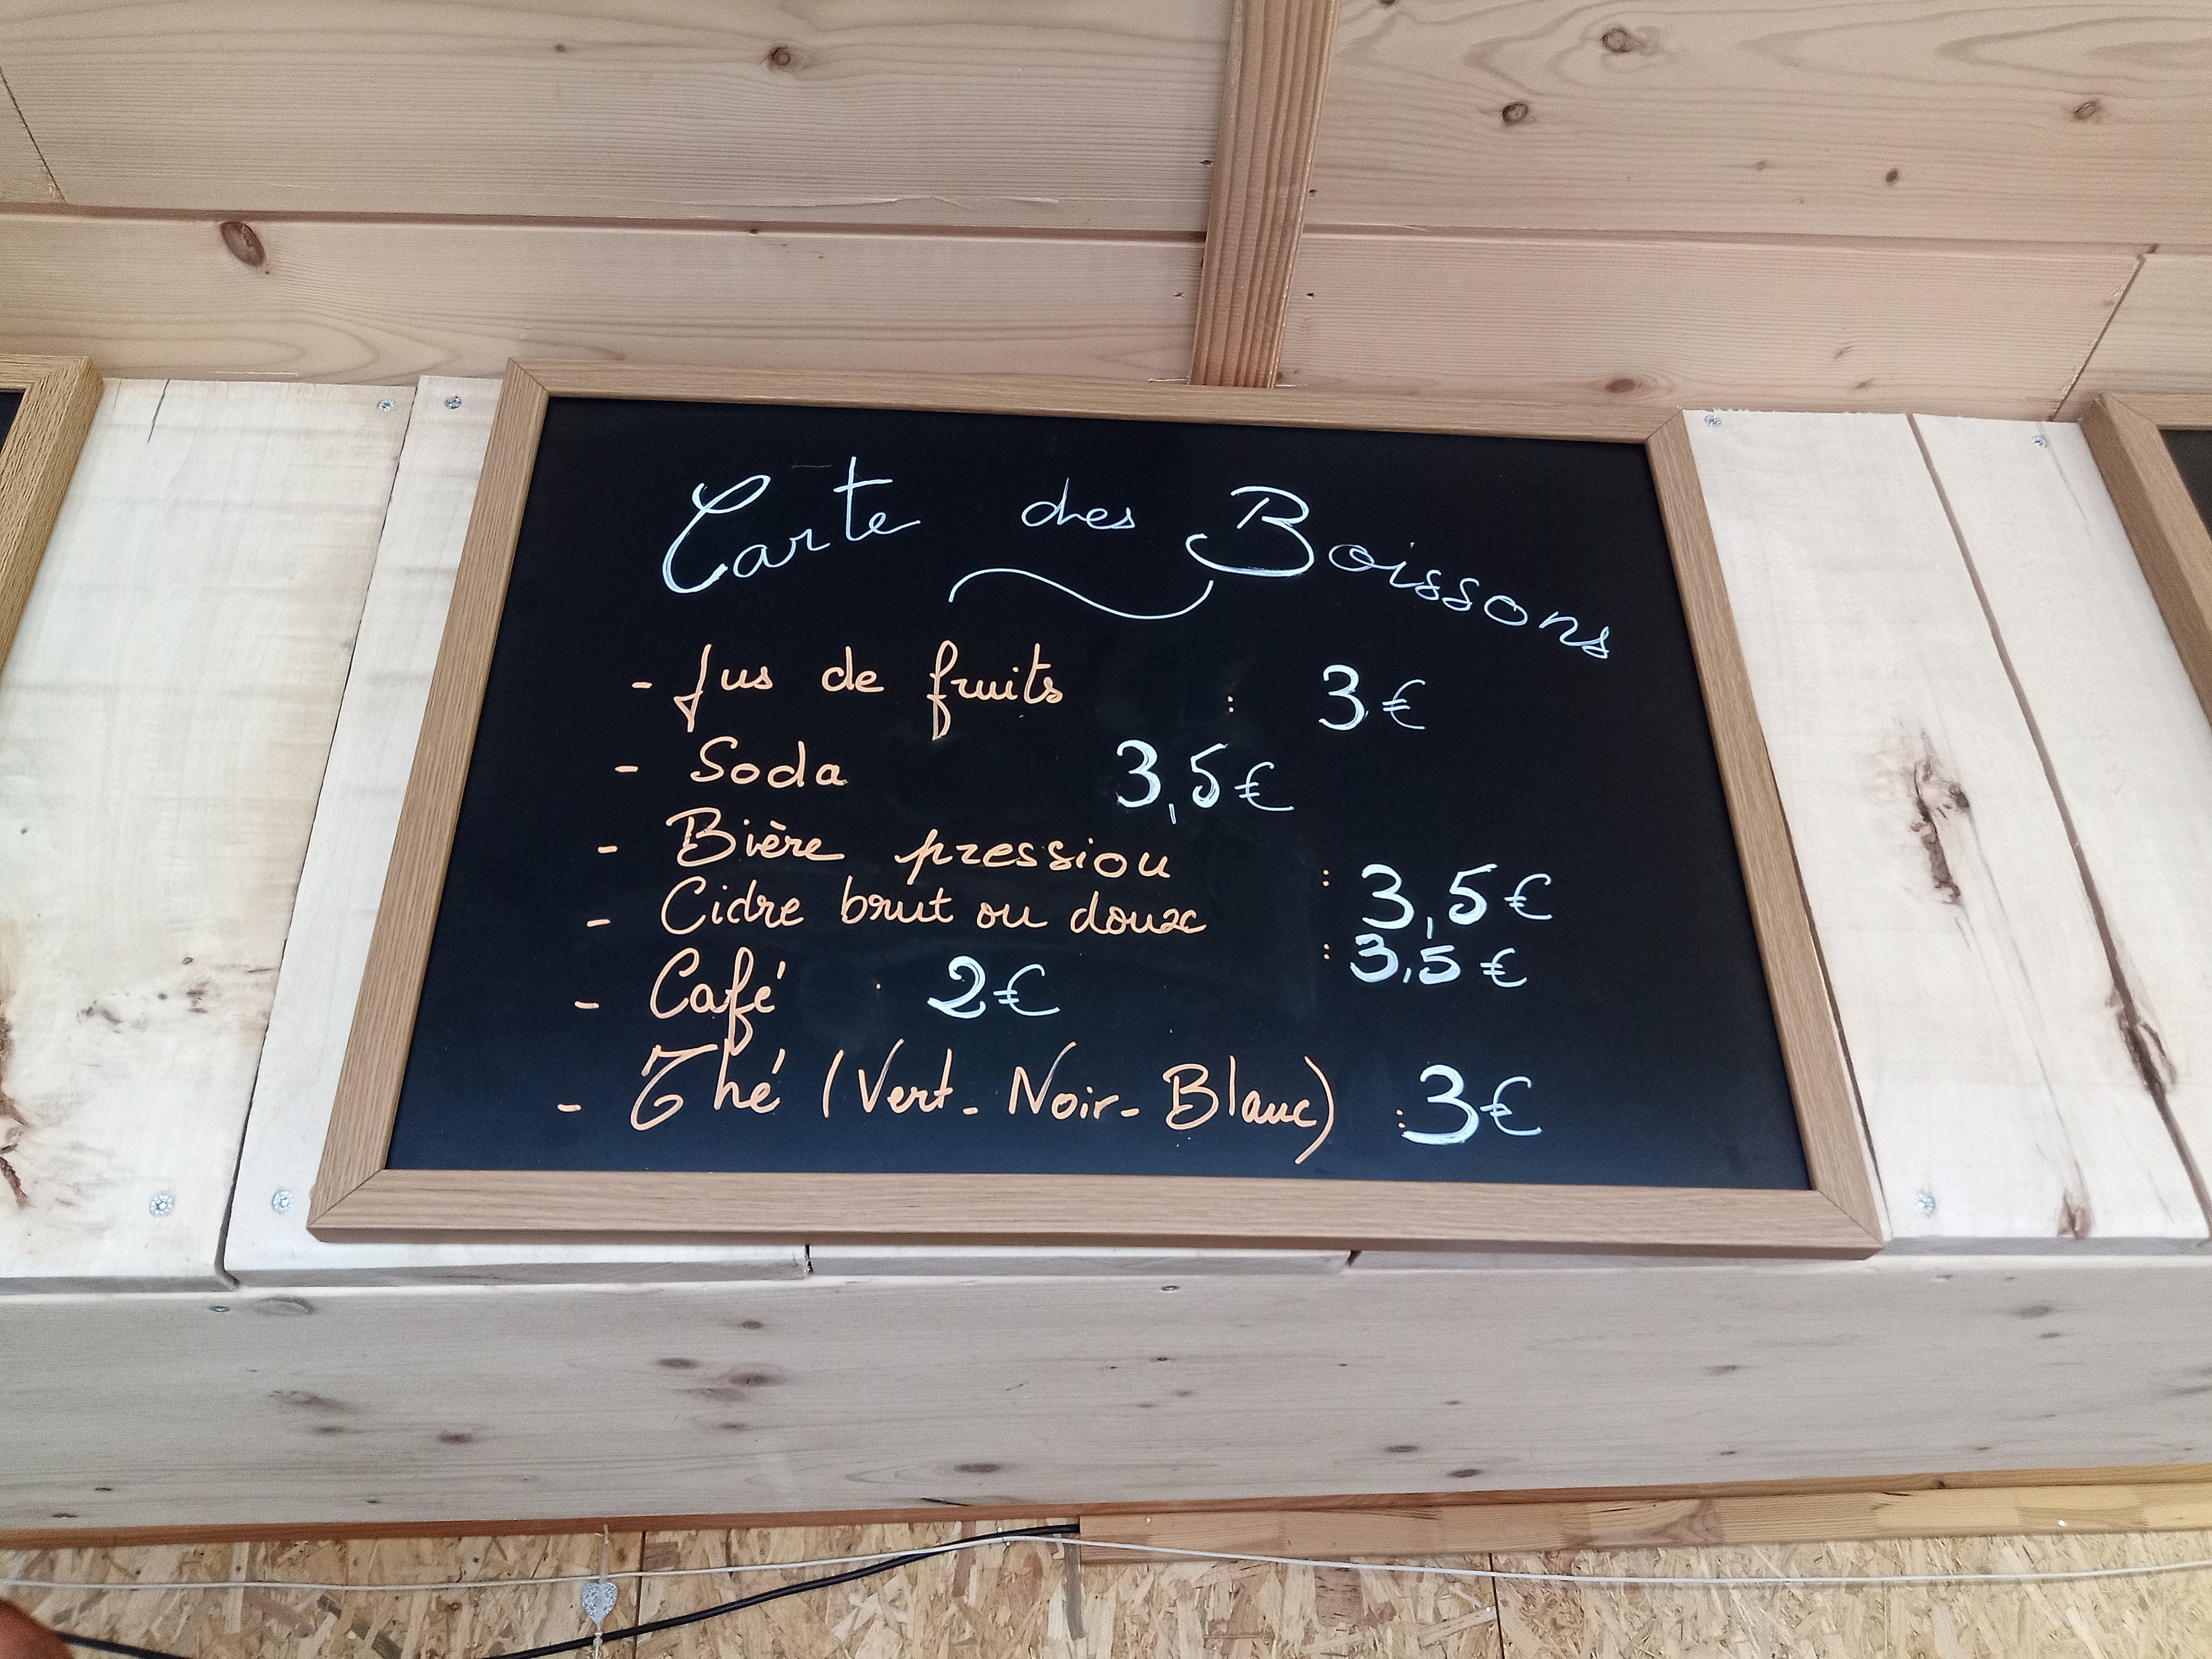 Carte des Boissons
- Jus de fruits : 3€
- Soda 3,5€
- Bière pression : 3,5€
- Cidre brut ou doux : 3,5€
- Café : 2€
- Thé (Vert - Noir - Blanc) : 3€